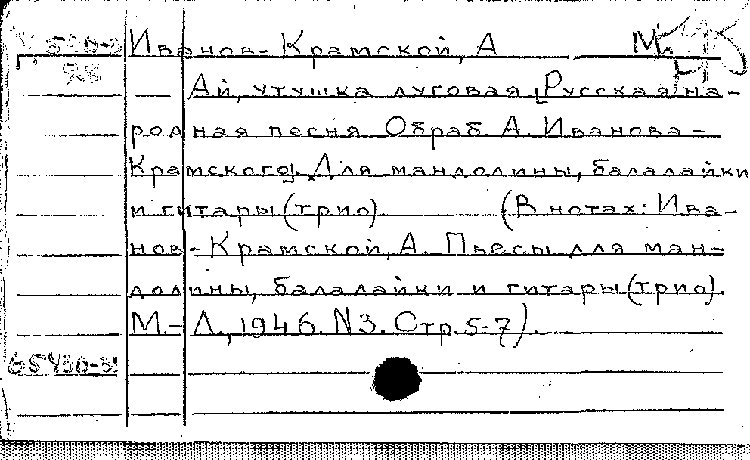 Иванов-Крамской, А М.
Ай, утушка луговая [Русская на-
родная песня Обраб. А. Иванова-
Крамского]. Для мандолины, балалайки
и гитары (трио). (В нотах: Ива-
нов-Крамской, А. Пьесы для ман-
долины, балалайки и гитары (трио).
М.-Л., 1946. N3. Стр. 5-7).